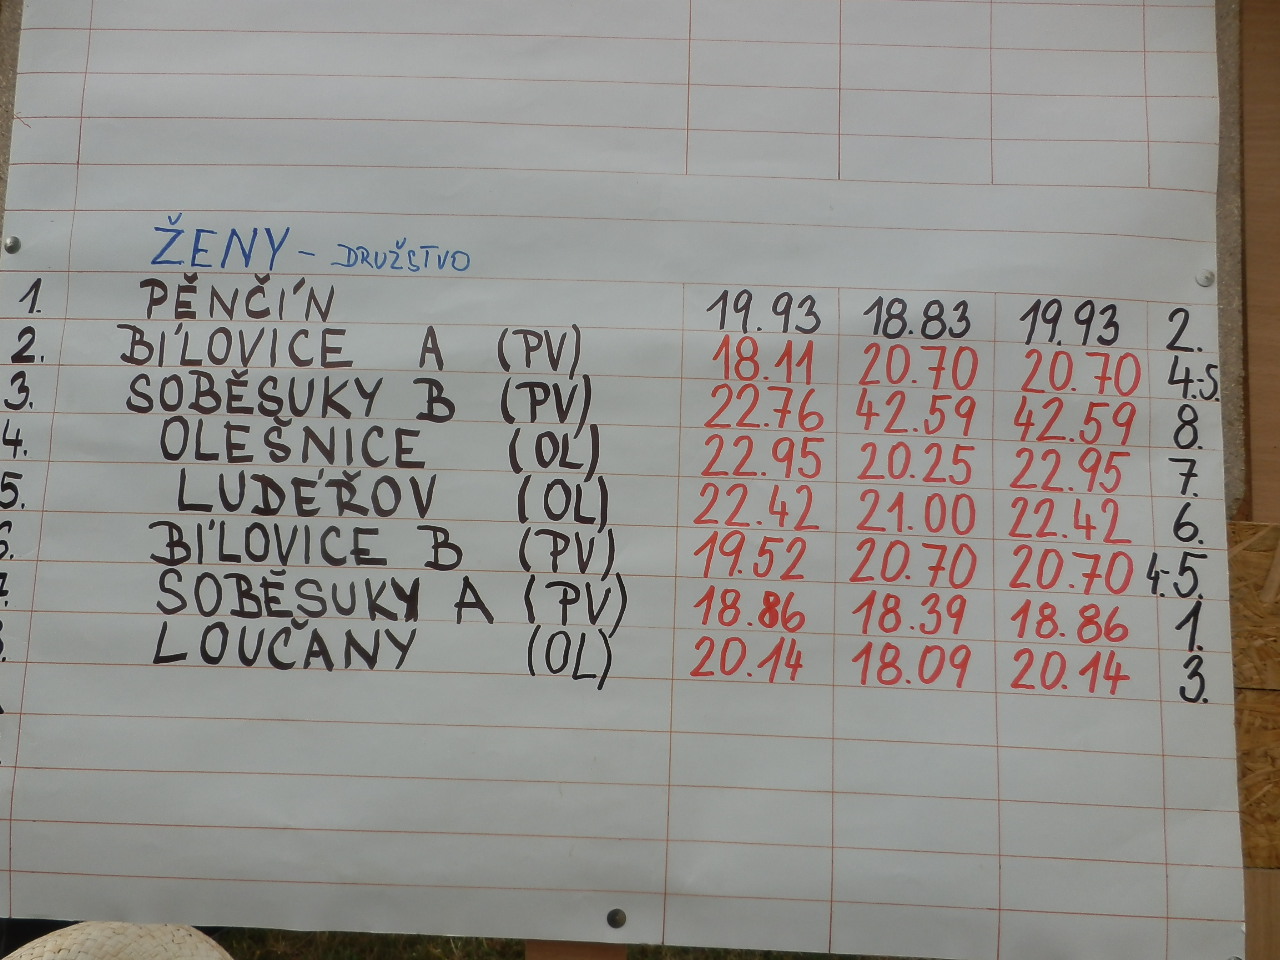 ŽENY - DRUŽSTVO
1. PĚNČÍN 19.93 18.83 19.93 2.
2. BÍLOVICE A (PV) 18.11 20.70 20.70 4.-5.
3. SOBĚSUKY B (PV) 22.76 42.59 42.59 8.
4. OLEŠNICE (OL) 22.95 20.25 22.95 7.
5. LUDÉŘOV (OL) 22.42 21.00 22.42 6.
6. BÍLOVICE B (PV) 19.52 20.70 20.70 4.-5.
7. SOBĚSUKY A (PV) 18.86 18.39 18.86 1.
LOUČANY (OL) 20.14 18.09 20.14 3.